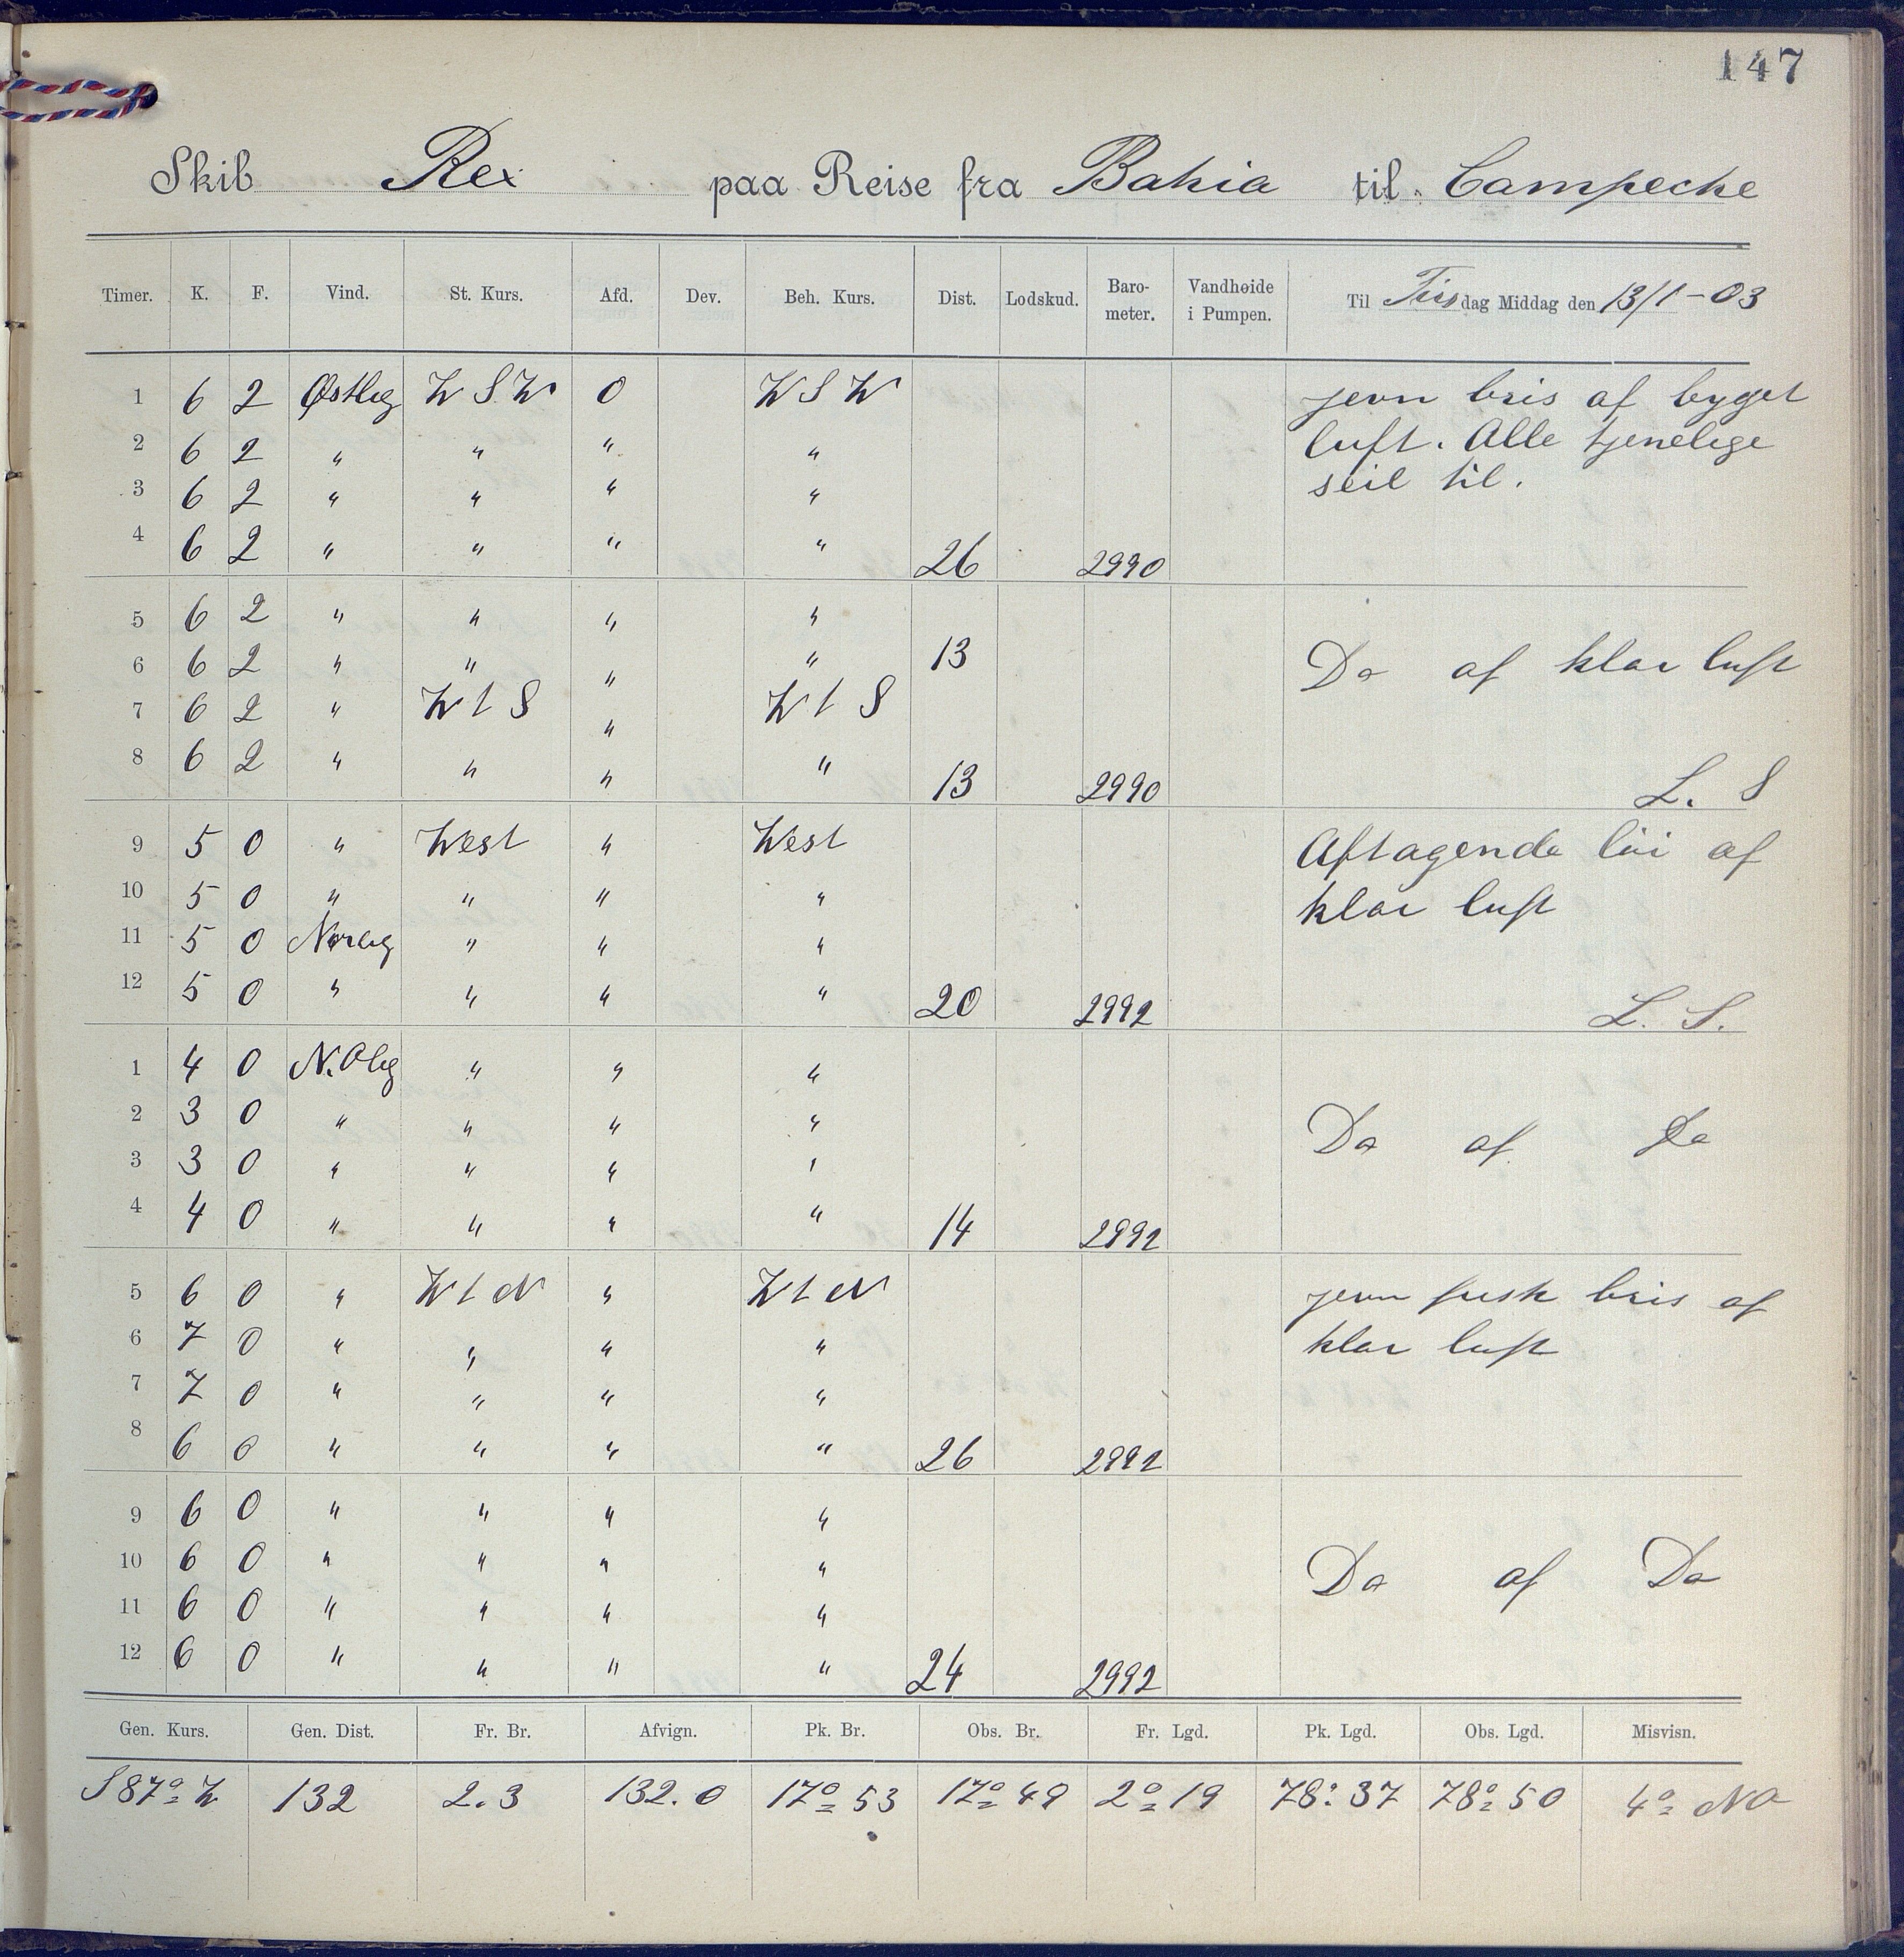 147
Skib Rex paa Reise fra Bahia til Campeche
Timer. K. F. Vind. St. Kurs. Afd. Dev. Beh. Kurs. Dist. Lodskud. Barometer. Vandhøide i Pumpen. Til Tirsdag Middag den 13/1-03
1 6 2 Østlig W S W 0 W S W jevn bris af byget
2 6 2 " " " " luft. Alle tjenelige
3 6 2 " " " " seil til.
4 6 2 " " " " 26 2990
5 6 2 " " " "
6 6 2 " " " " 13 Do af klar luft
7 6 2 " W t S " W t S
8 6 2 " " " " 13 2990 L. S
9 5 0 " West " West Aftagende löi af
10 5 0 " " " " klar luft
11 5 0 Norlig " " "
12 5 0 " " " " 20 2992 L. S.
1 4 0 N.Olig " " "
2 3 0 " " " " Do af Do
3 3 0 " " " "
4 4 0 " " " " 14 2992
5 6 0 " W t N " W t N jevn frisk bris af
6 7 0 " " " " klar luft
7 7 0 " " " "
8 6 0 " " " " 26 2992
9 6 0 " " " "
10 6 0 " " " " Do af Do
11 6 0 " " " "
12 6 0 " " " " 24 2992
Gen. Kurs. Gen. Dist. Fr. Br. Afvign. Pk. Br. Obs. Br. Fr. Lgd. Pk. Lgd. Obs. Lgd. Misvisn.
S 87° W 132 2.3 132.0 17° 53 17° 49 2° 19 78° 37 78° 50 4° NO